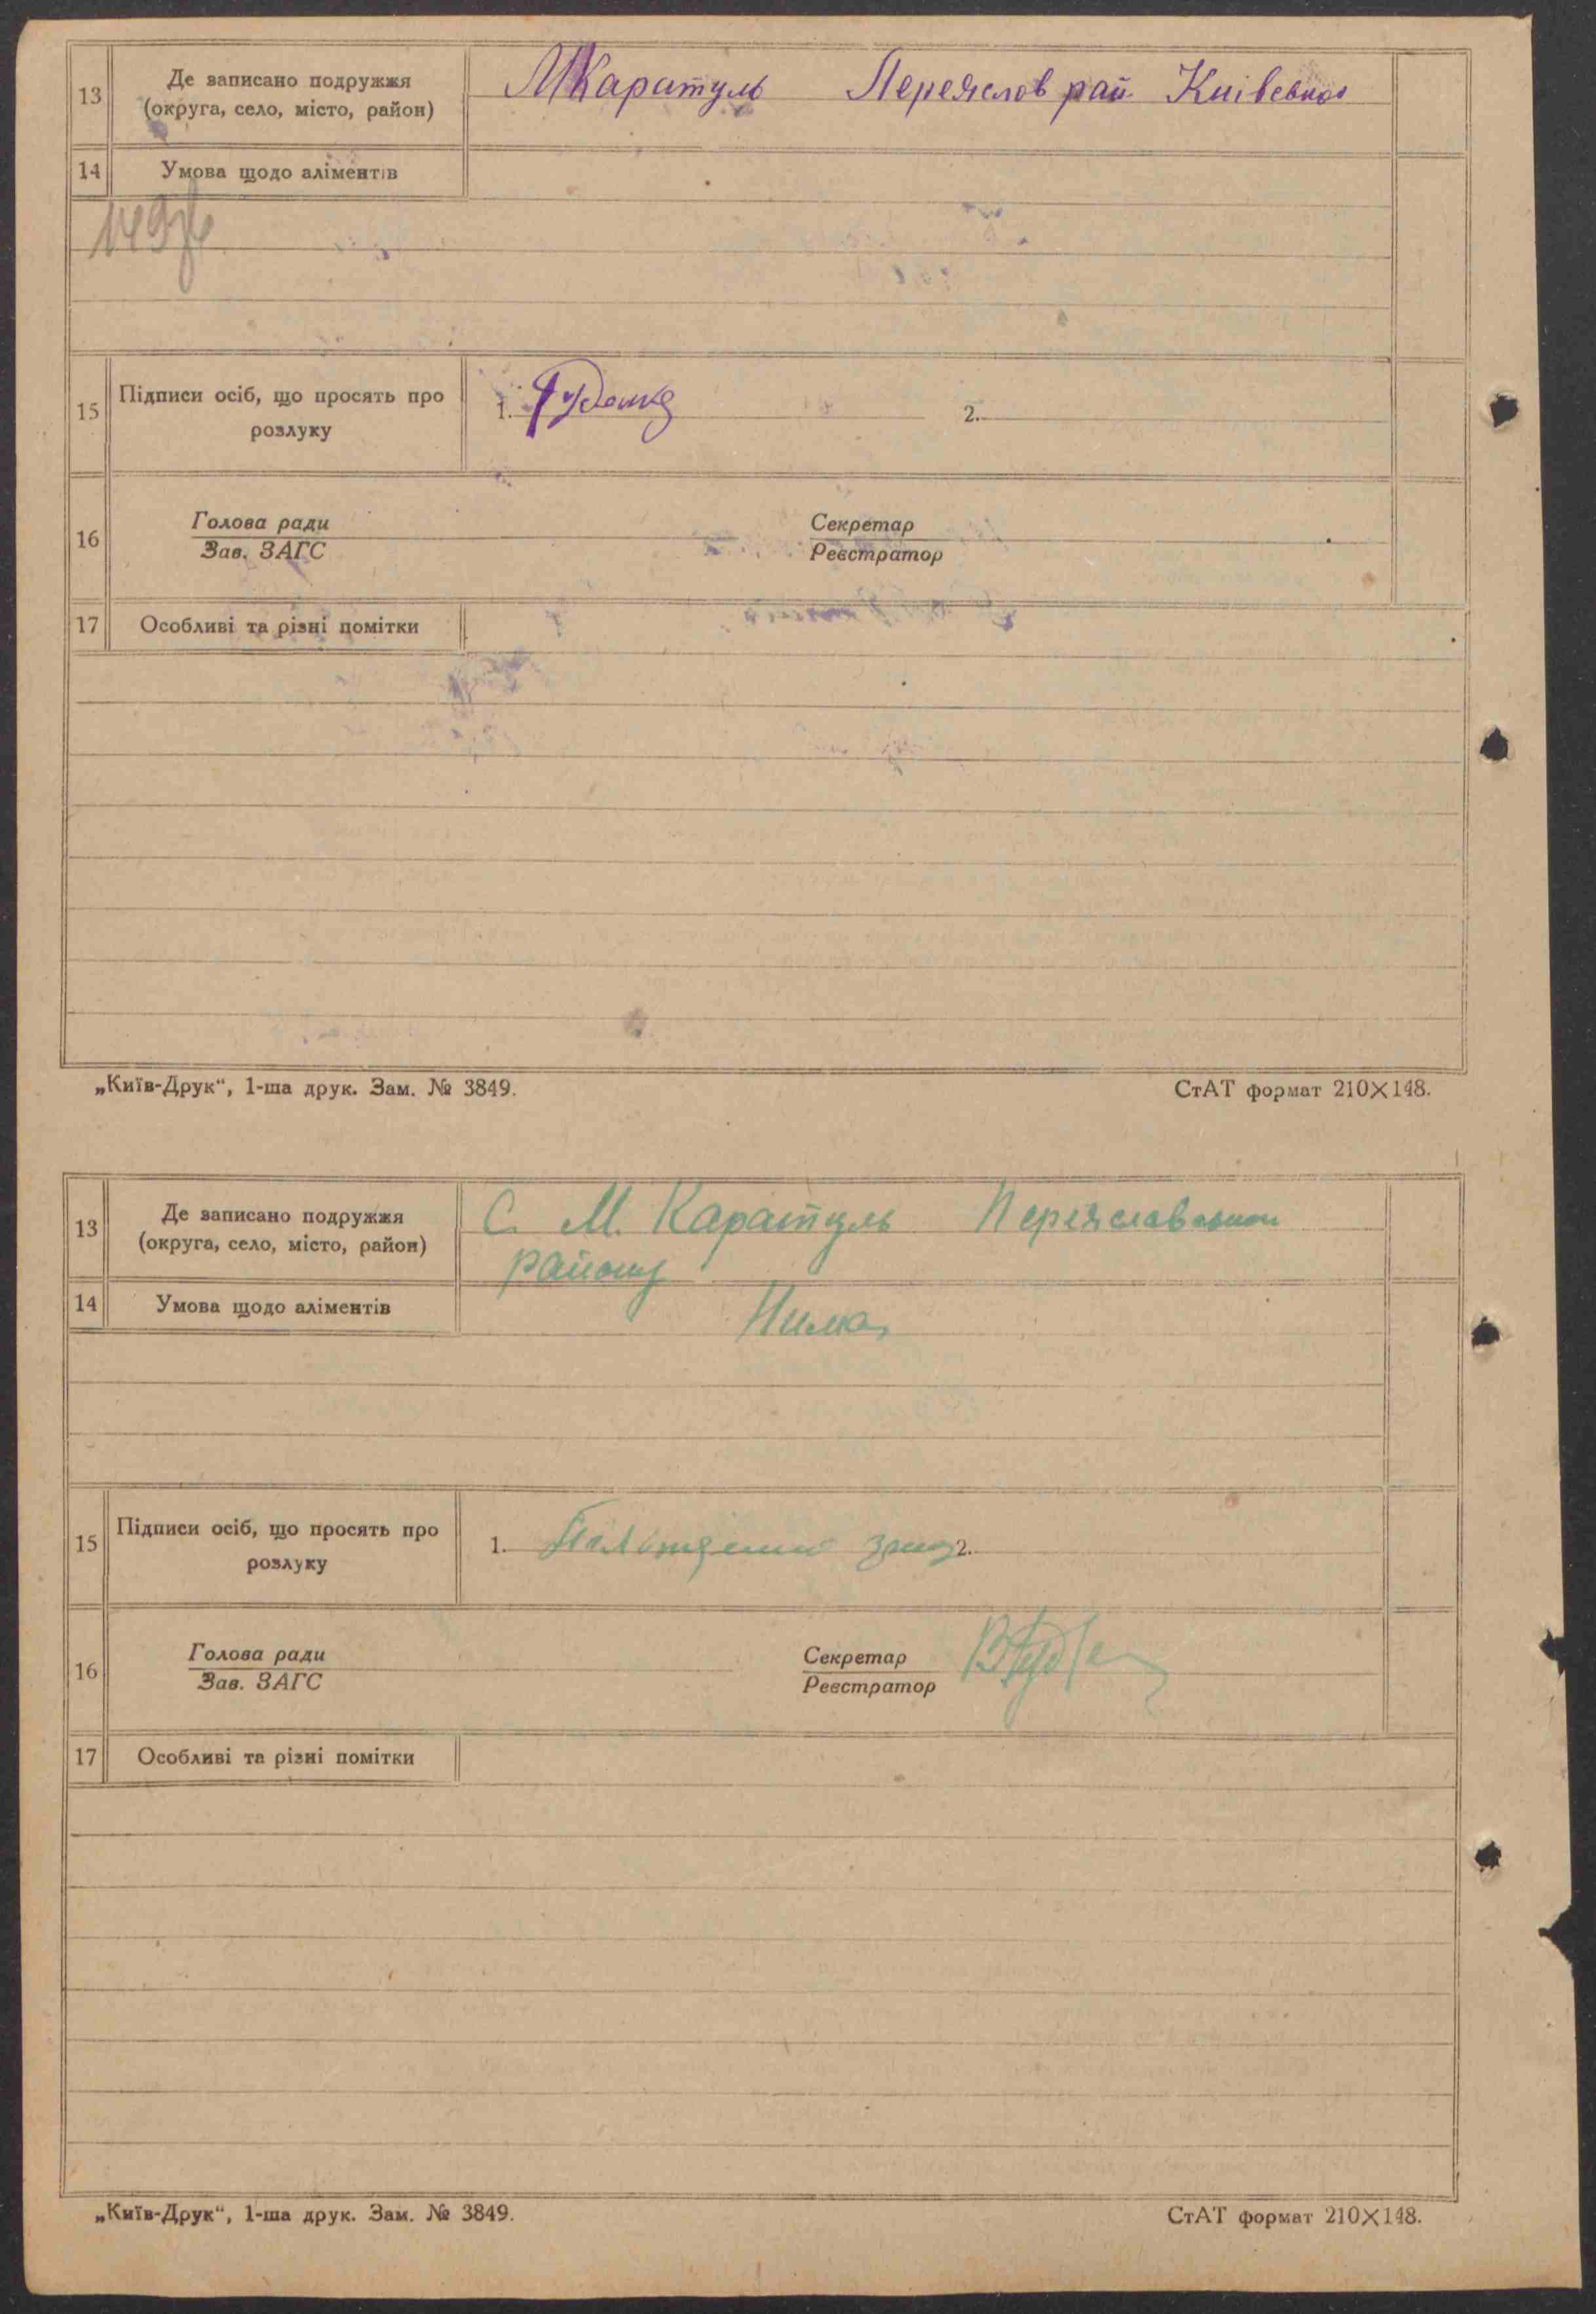 13 Де записано подружжя
(округа, село, місто, район)
МКаратуль Переяслов рай Київської
14 Умова щодо аліментів
15 Підписи осіб, що просять про
розлуку
1. 2.
16 Голова ради
Зав. ЗАГС
Секретар
Реєстратор
17 Особливі та різні помітки
„Київ-Друк“, 1-ша друк. Зам. № 3849.
СтАТ формат 210×148.
13 Де записано подружжя
(округа, село, місто, район)
С. М. Каратуль Переяславського
району
14 Умова щодо аліментів
Нима
15 Підписи осіб, що просять про
розлуку
1. 2.
16 Голова ради
Зав. ЗАГС
Секретар
Реєстратор
17 Особливі та різні помітки
„Київ-Друк“, 1-ша друк. Зам. № 3849.
СтАТ формат 210×148.